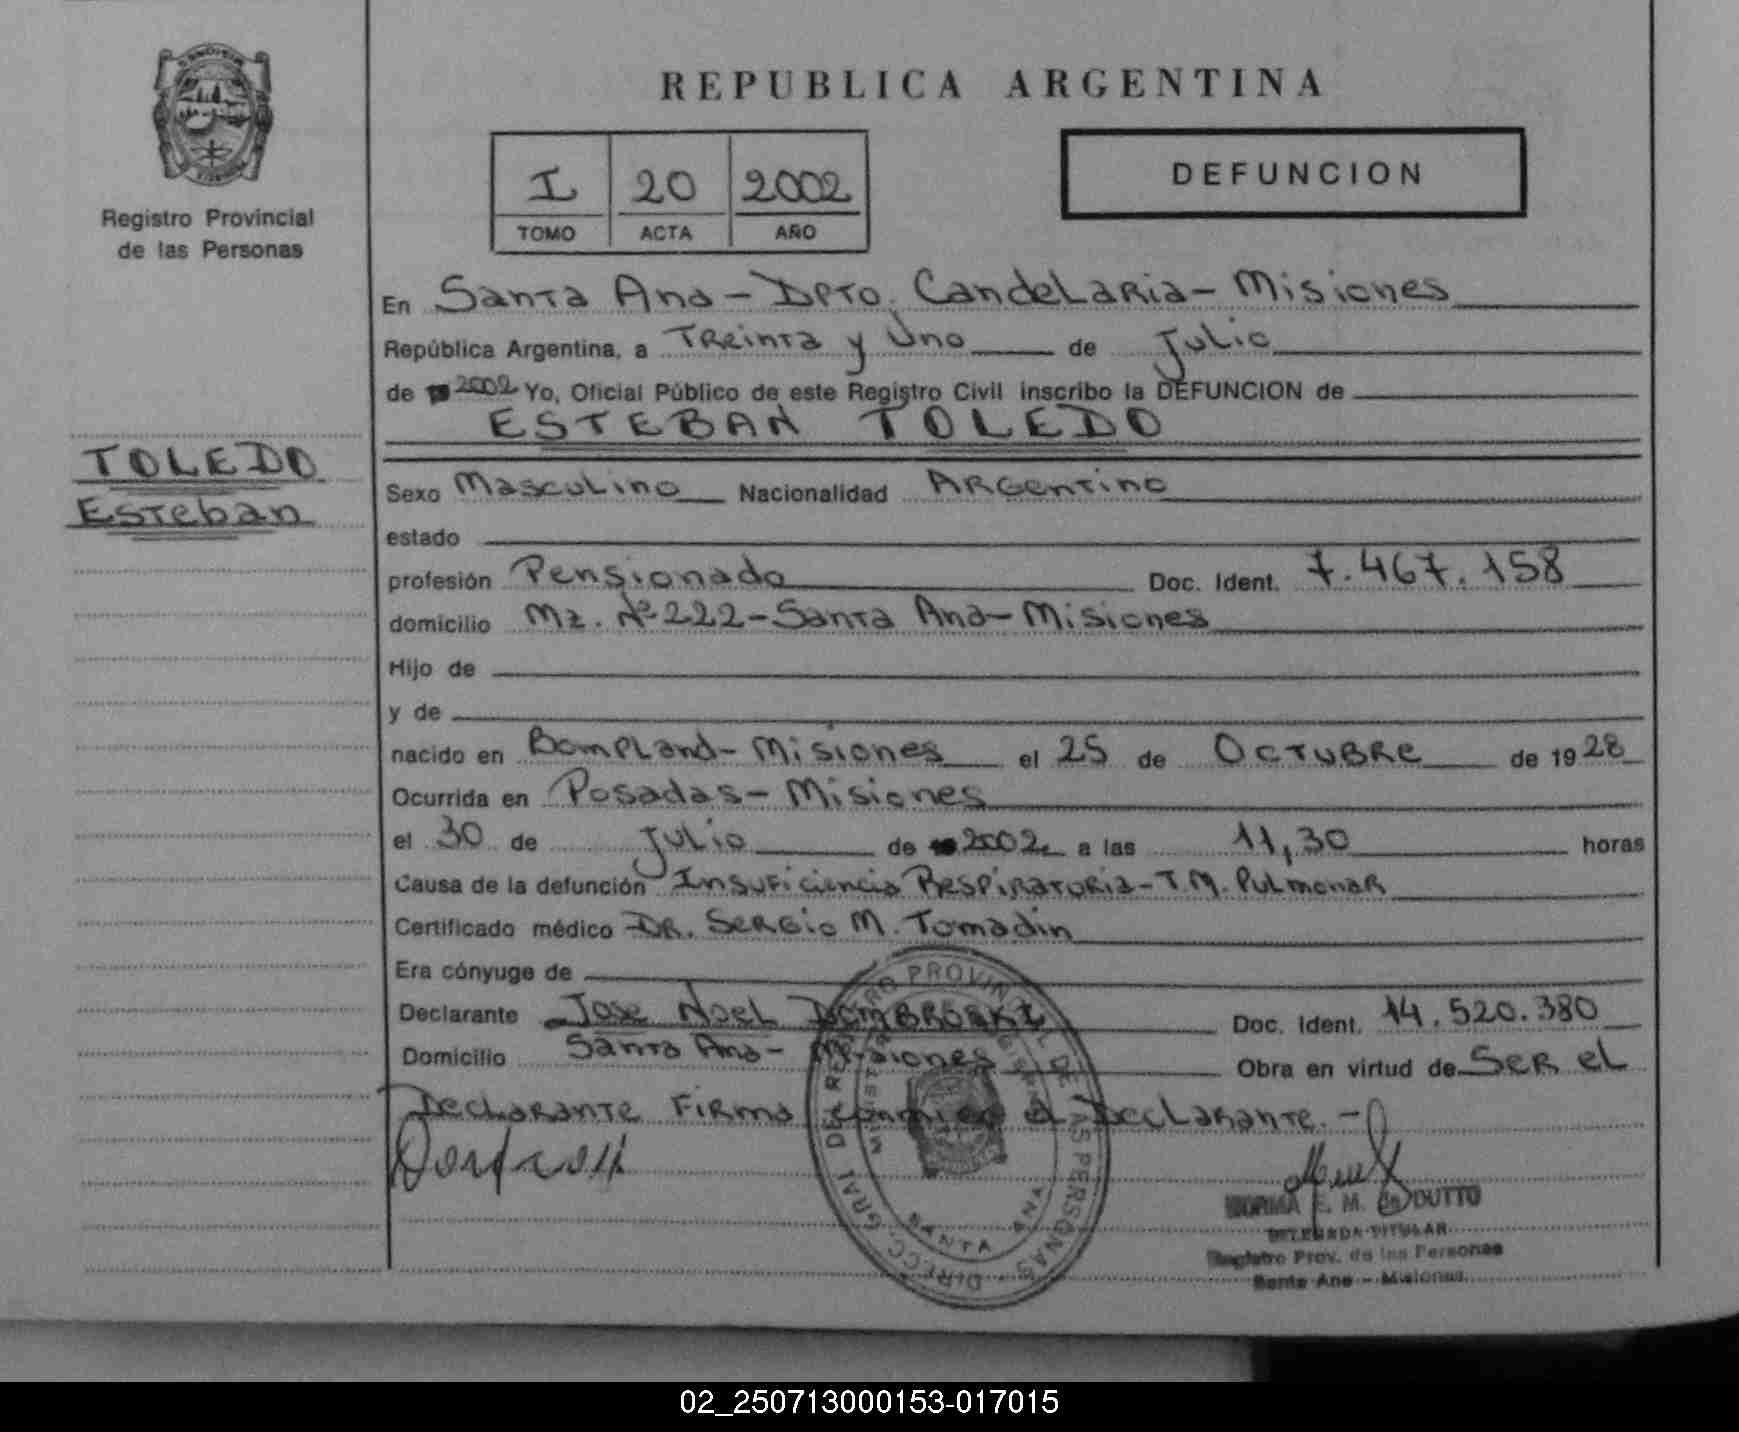 REPUBLICA ARGENTINA
Registro Provincial
de las Personas
I 20 2002
TOMO ACTA AÑO
DEFUNCION
En Santa Ana - Dpto. Candelaria - Misiones
República Argentina, a Treinta y Uno de Julio
de 2002 Yo, Oficial Público de este Registro Civil inscribo la DEFUNCION de
ESTEBAN TOLEDO
TOLEDO
Esteban
Sexo Masculino Nacionalidad Argentino
estado
profesión Pensionado Doc. Ident. 7.467.158
domicilio Mz. Nº 222 - Santa Ana - Misiones
Hijo de
y de
nacido en Bompland - Misiones el 25 de Octubre de 1928
Ocurrida en Posadas - Misiones
el 30 de Julio de 2002 a las 11,30 horas
Causa de la defunción Insuficiencia Respiratoria - T.M. Pulmonar
Certificado médico DR. Sergio M. Tomadin
Era cónyuge de
Declarante Jose Noel DOMBROSKI Doc. Ident. 14.520.380
Domicilio Santa Ana - Misiones Obra en virtud de Ser el
Declarante Firma conmigo el Declarante. -
DIRECC. GRAL DE REGISTRO PROVINCIAL DE LAS PERSONAS
SANTA ANA
NORMA E. M. de DUTTO
DELEGADA TITULAR
Registro Prov. de las Personas
Santa Ana - Misiones
02_250713000153-017015